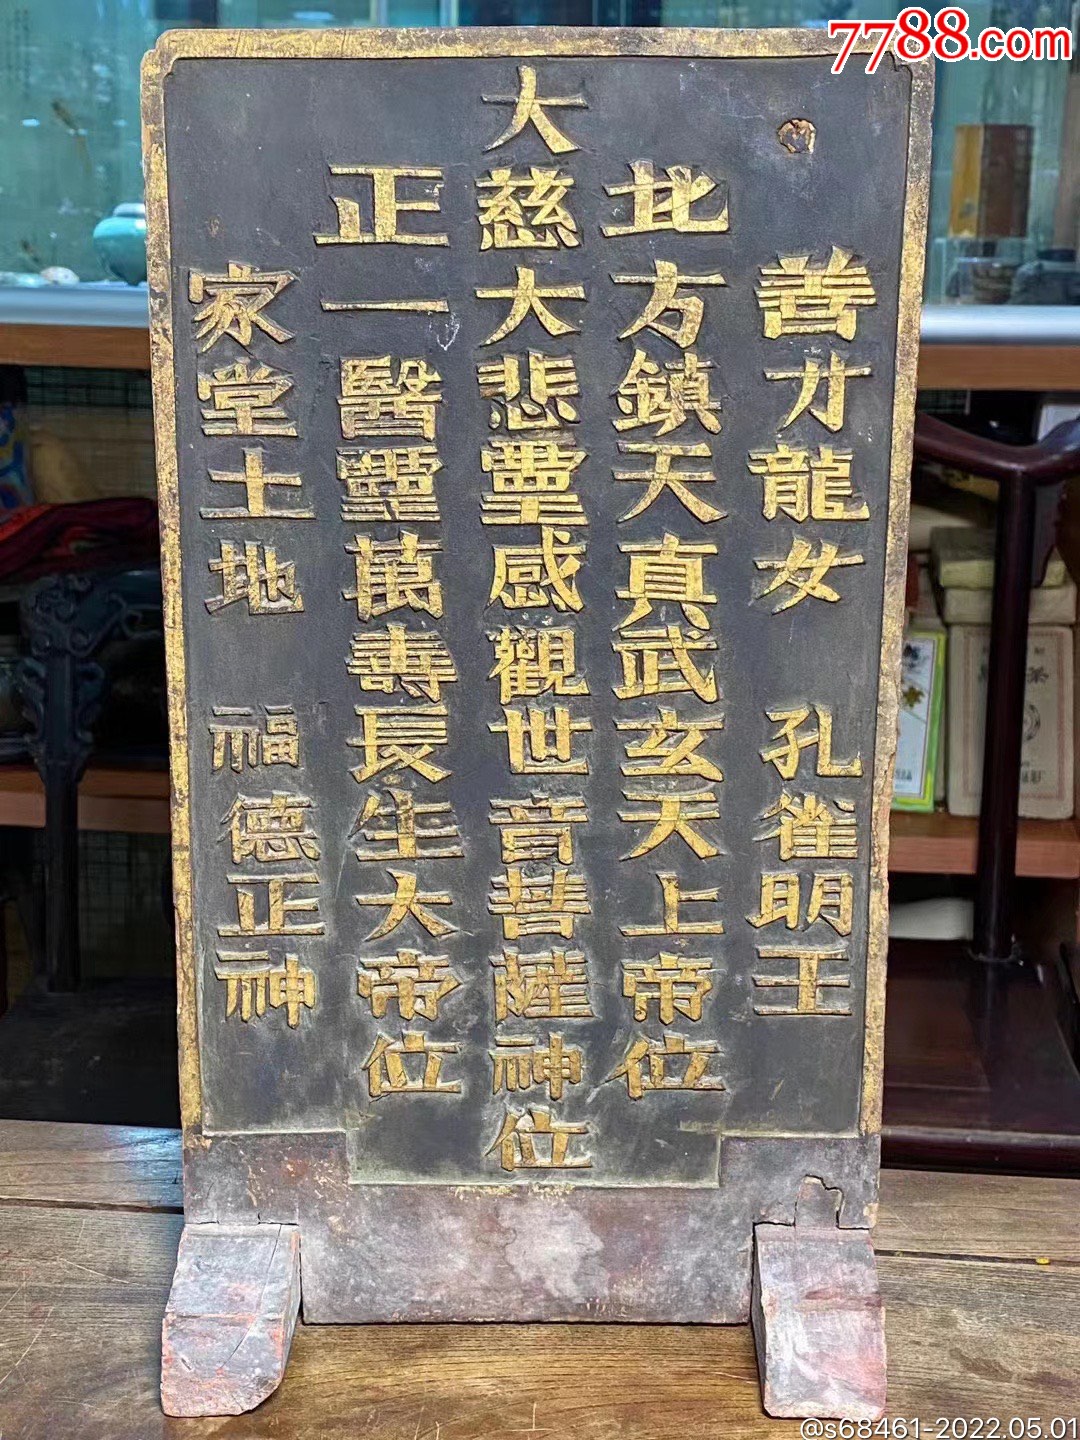 7788.com
善才龍女 孔雀明王
北方鎮天真武玄天上帝位
大慈大悲靈感觀世音菩薩神位
正一醫靈萬壽長生大帝位
家堂土地 福德正神
@s68461-2022.05.01